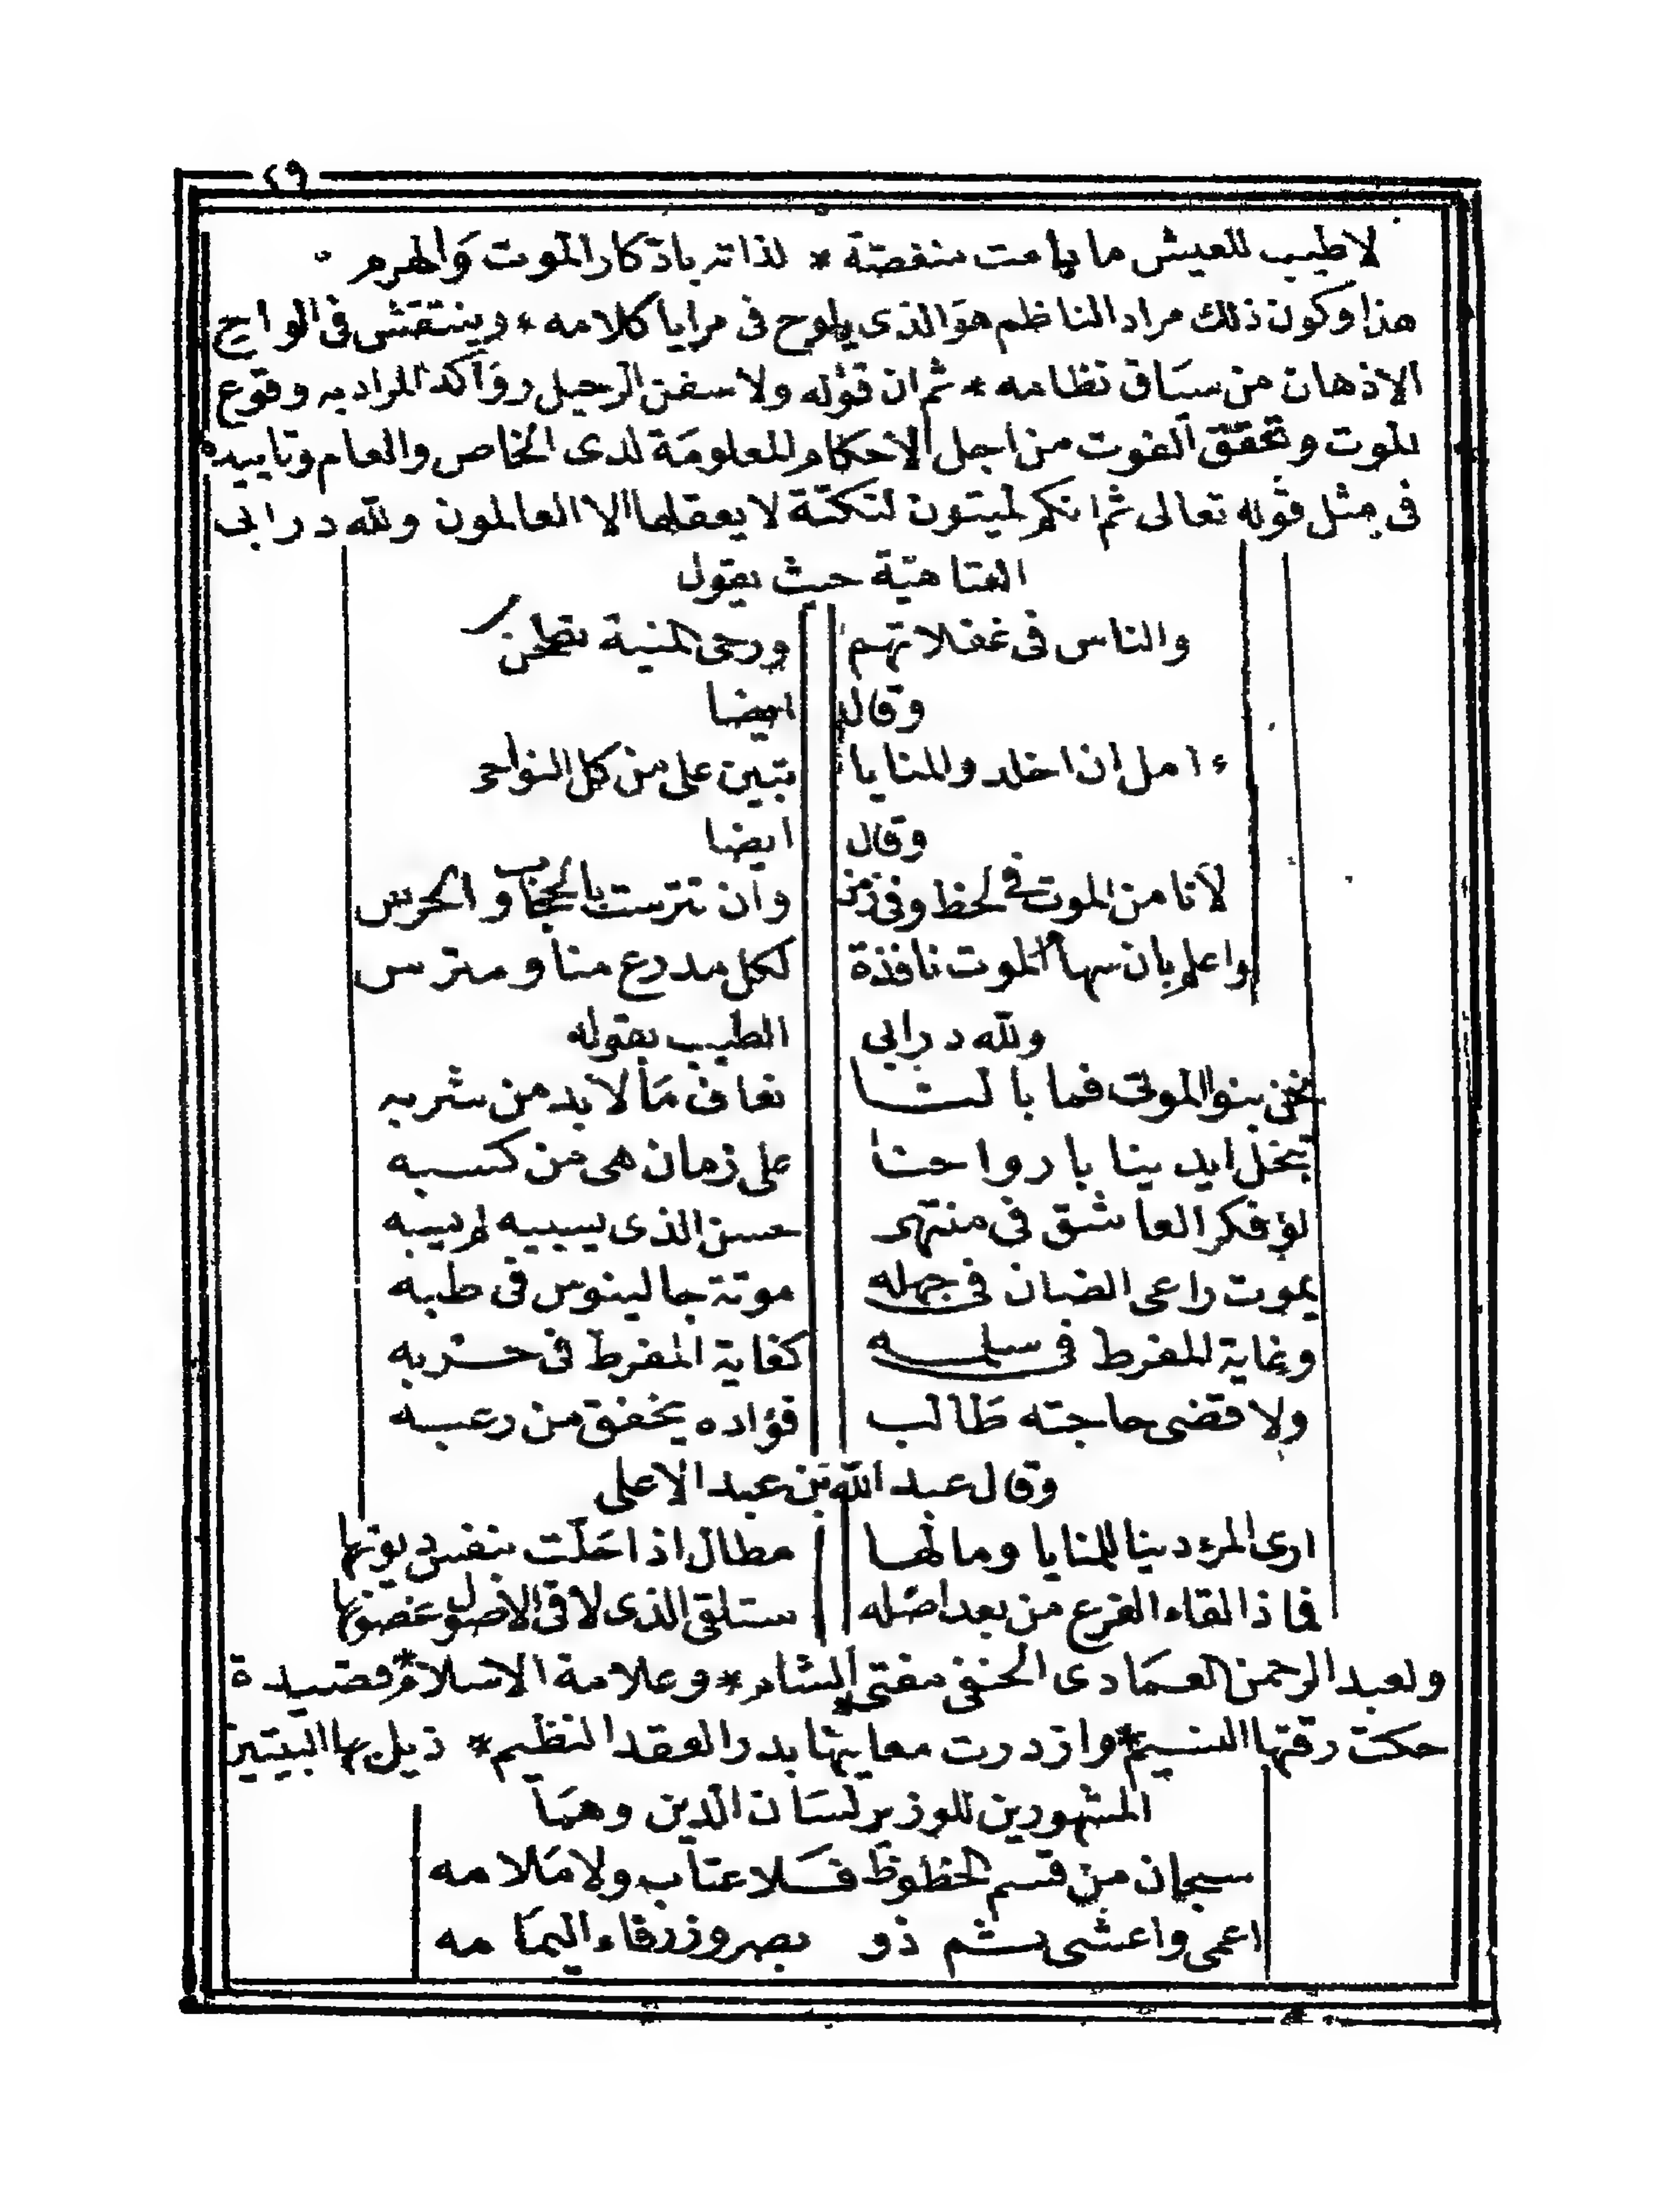 ٤٩
لاطيب للعيش ما يامت منغصة * لذاته باذكار الموت والهرم
هذا وكون ذلك مراد الناظم هو الذى يلوح فى مرايا كلامه * وينتقش فى الواح
الاذهان من سياق نظامه * ثم ان قوله ولا سفن الرحيل رواكد المراد به وقوع
الموت وتحقق الفوت من اجل الاحكام المعلومة لدى الخاص والعام وتاييده
فى مثل قوله تعالى ثم انكم لميتون لنكتة لا يعقلها الا العالمون ولله در ابى
العتاهية حيث يقول
والناس فى غفلاتهم ورحى المنية تطحن
وقال ايضا
ءامل ان اخلد والمنايا تبين على من كل النواحى
وقال ايضا
لا تامن الموت فى لحظ وفى نفس وان تترست بالحجاب والحرس
واعلم بان سهام الموت نافذة لكل مدرع منا ومترس
ولله در ابى الطيب بقوله
نحن بنو الموتى فما بالنا نعاف ما لابد من شربه
تبخل ايدينا بارواحنا على زمان هى من كسبه
لو فكر العاشق فى منتهى حسن الذى يسبيه لم يسبه
يموت راعى الضان فى جهله موتة جالينوس فى طبه
وغاية المفرط فى سلمه كغاية المفرط فى حربه
ولا قضى حاجته طالب فؤاده يخفق من رعبه
وقال عبد الله بن عبد الاعلى
ارى المرء دينا للمنايا وما لها مطال اذا حلت بنفس ديونها
فماذا القاء الفرع من بعد اصله ستلقى الذى لاقى الاصول غصونها
ولعبد الرحمن العمادى الحنفى مفتى الشام * وعلامة الاسلام * قصيدة
حكت رقتها النسيم * وازدرت معانيها بدر العقد النظيم * ذيل بها البيتين
المشهورين للوزير لسان الدين وهما
سبحان من قسم الحظوظ فلا عتاب ولا ملامه
اعمى واعشى ثم ذو بصر وزرقاء اليمامه